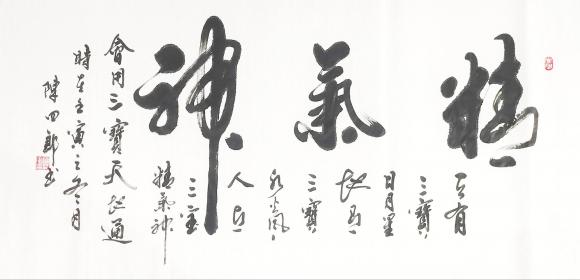 精氣神
天有
三寶
日月星
地有
三寶
水火風
人有
三宝
精氣神
會用三寶天地通
時在壬寅之冬月
陳四郎书